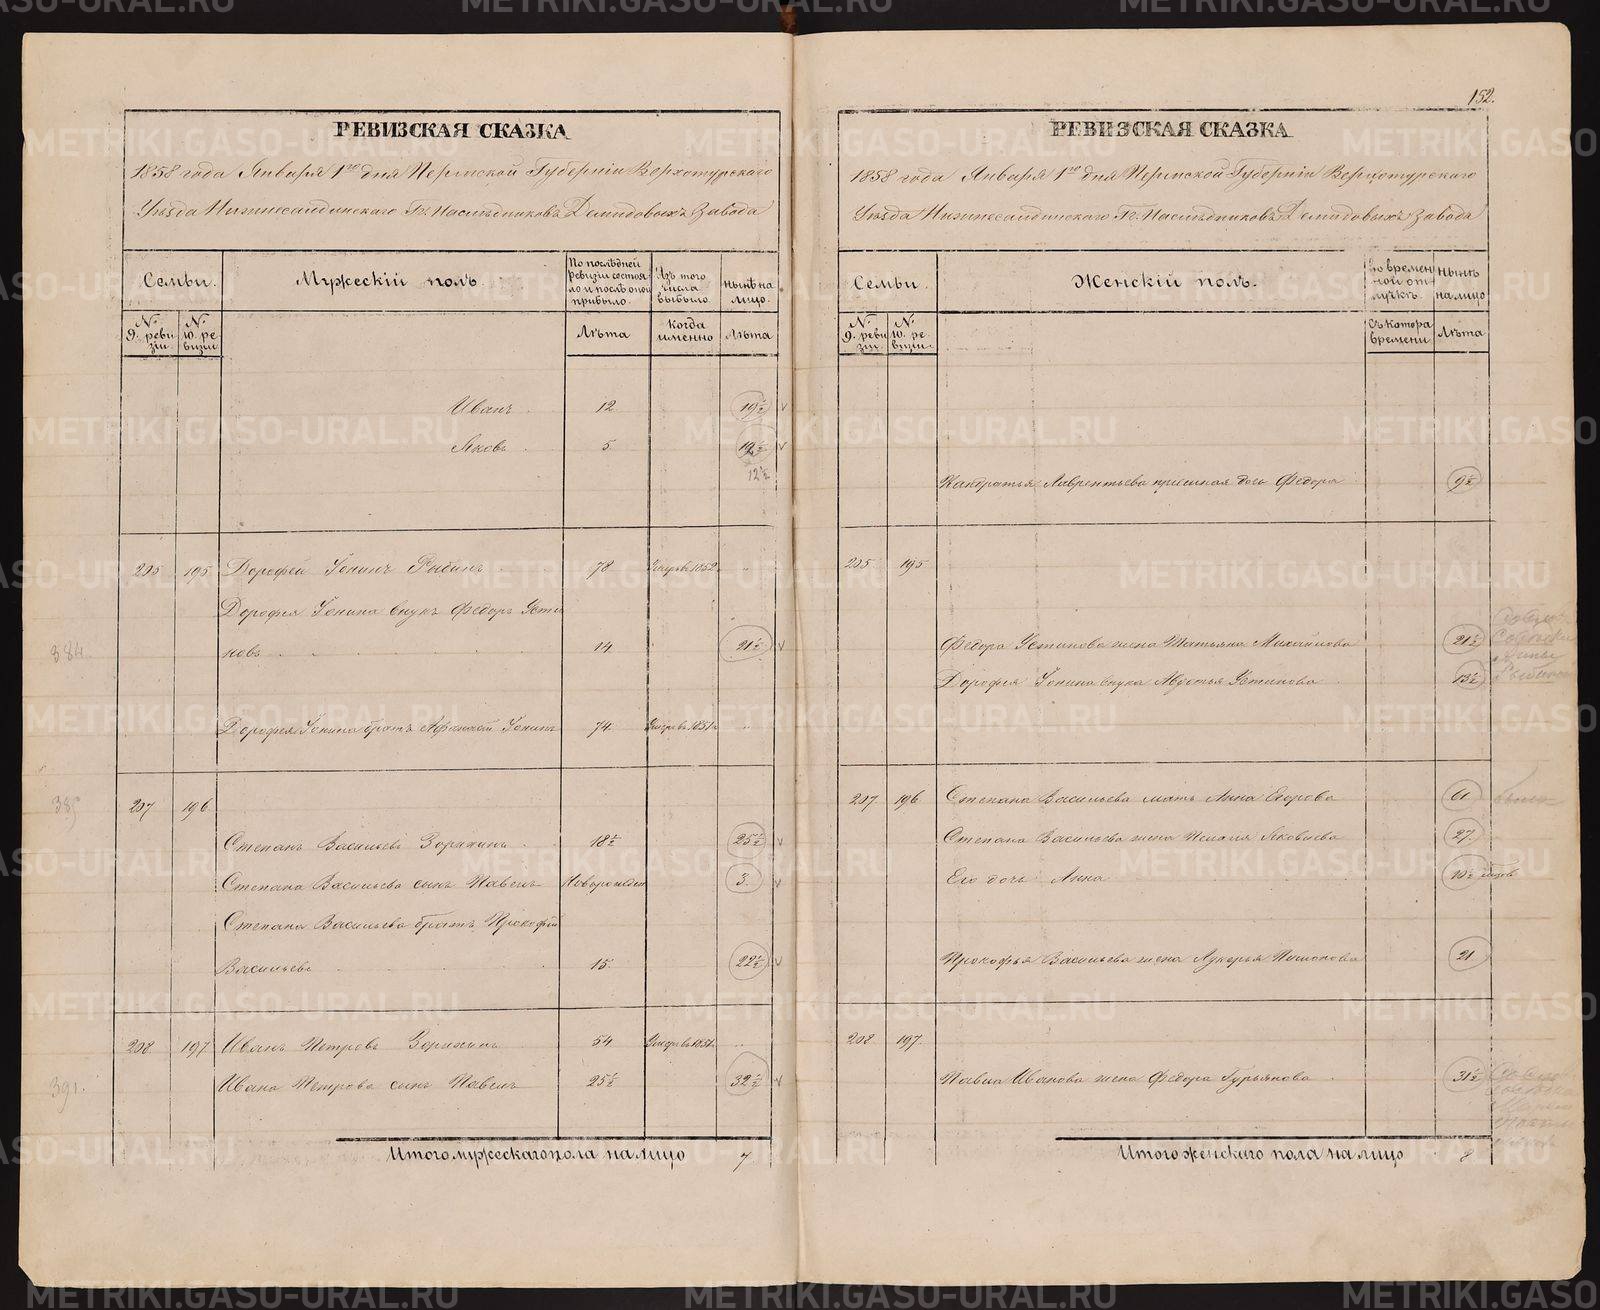 152.
РЕВИЗСКАЯ СКАЗКА
1858 года Января 1го дня Пермской Губерніи Верхотурскаго
Уѣзда Нижнесалдинскаго Гг. Наслѣдниковъ Демидовыхъ Завода
Семьи.
Мужескій полъ.
По послѣдней ревизіи состояло и послѣ оной прибыло.
Изъ того числа выбыло.
Нынѣ на лицо.
№ 9. ревизіи
№ 10. ревизіи
Лѣта
Когда именно
Лѣта
Иванъ 12 19½
Яковъ 5 12½
12½
205 195 Дорофей Іонинъ Рыбинъ 78 1852
Дорофея Іонина внукъ Федоръ Усти
384 новъ 14 21½
Дорофея Іонина братъ Афанасій Іонинъ 74 1851
385 207 196
Степанъ Васильевъ Зорихинъ 18½ 25½
Степана Васильева сынъ Павелъ Новорожден 3
Степана Васильева братъ Прокофій
Васильевъ 15 22½
208 197 Иванъ Петровъ Зорихинъ 54 1851
391. Ивана Петрова сынъ Павелъ 25½ 32½
Итого мужескаго пола на лицо 7
РЕВИЗСКАЯ СКАЗКА
1858 года Января 1го дня Пермской Губерніи Верхотурскаго
Уѣзда Нижнесалдинскаго Гг. Наслѣдниковъ Демидовыхъ Завода
Семьи.
Женскій полъ.
Во временной отлучкѣ.
Нынѣ на лицо
№ 9. ревизіи
№ 10. ревизіи
Съ котора времени
Лѣта
Кандратья Лаврентьева дочь Федора 9½
205 195
Федора Устинова жена Татьяна Михайлова 21½
Дорофея Іонина внука Авдотья Устинова 13½
207. 196. Степана Васильева мать Анна Егорова 61
Степана Васильева жена Яковлева 27
Его дочь Анна 10½
Прокофья Васильева жена Лукерья 21
208 197.
Павла Иванова жена Федора Гурьянова 31½
Итого женскаго пола на лицо 8
METRIKI.GASO-URAL.RU